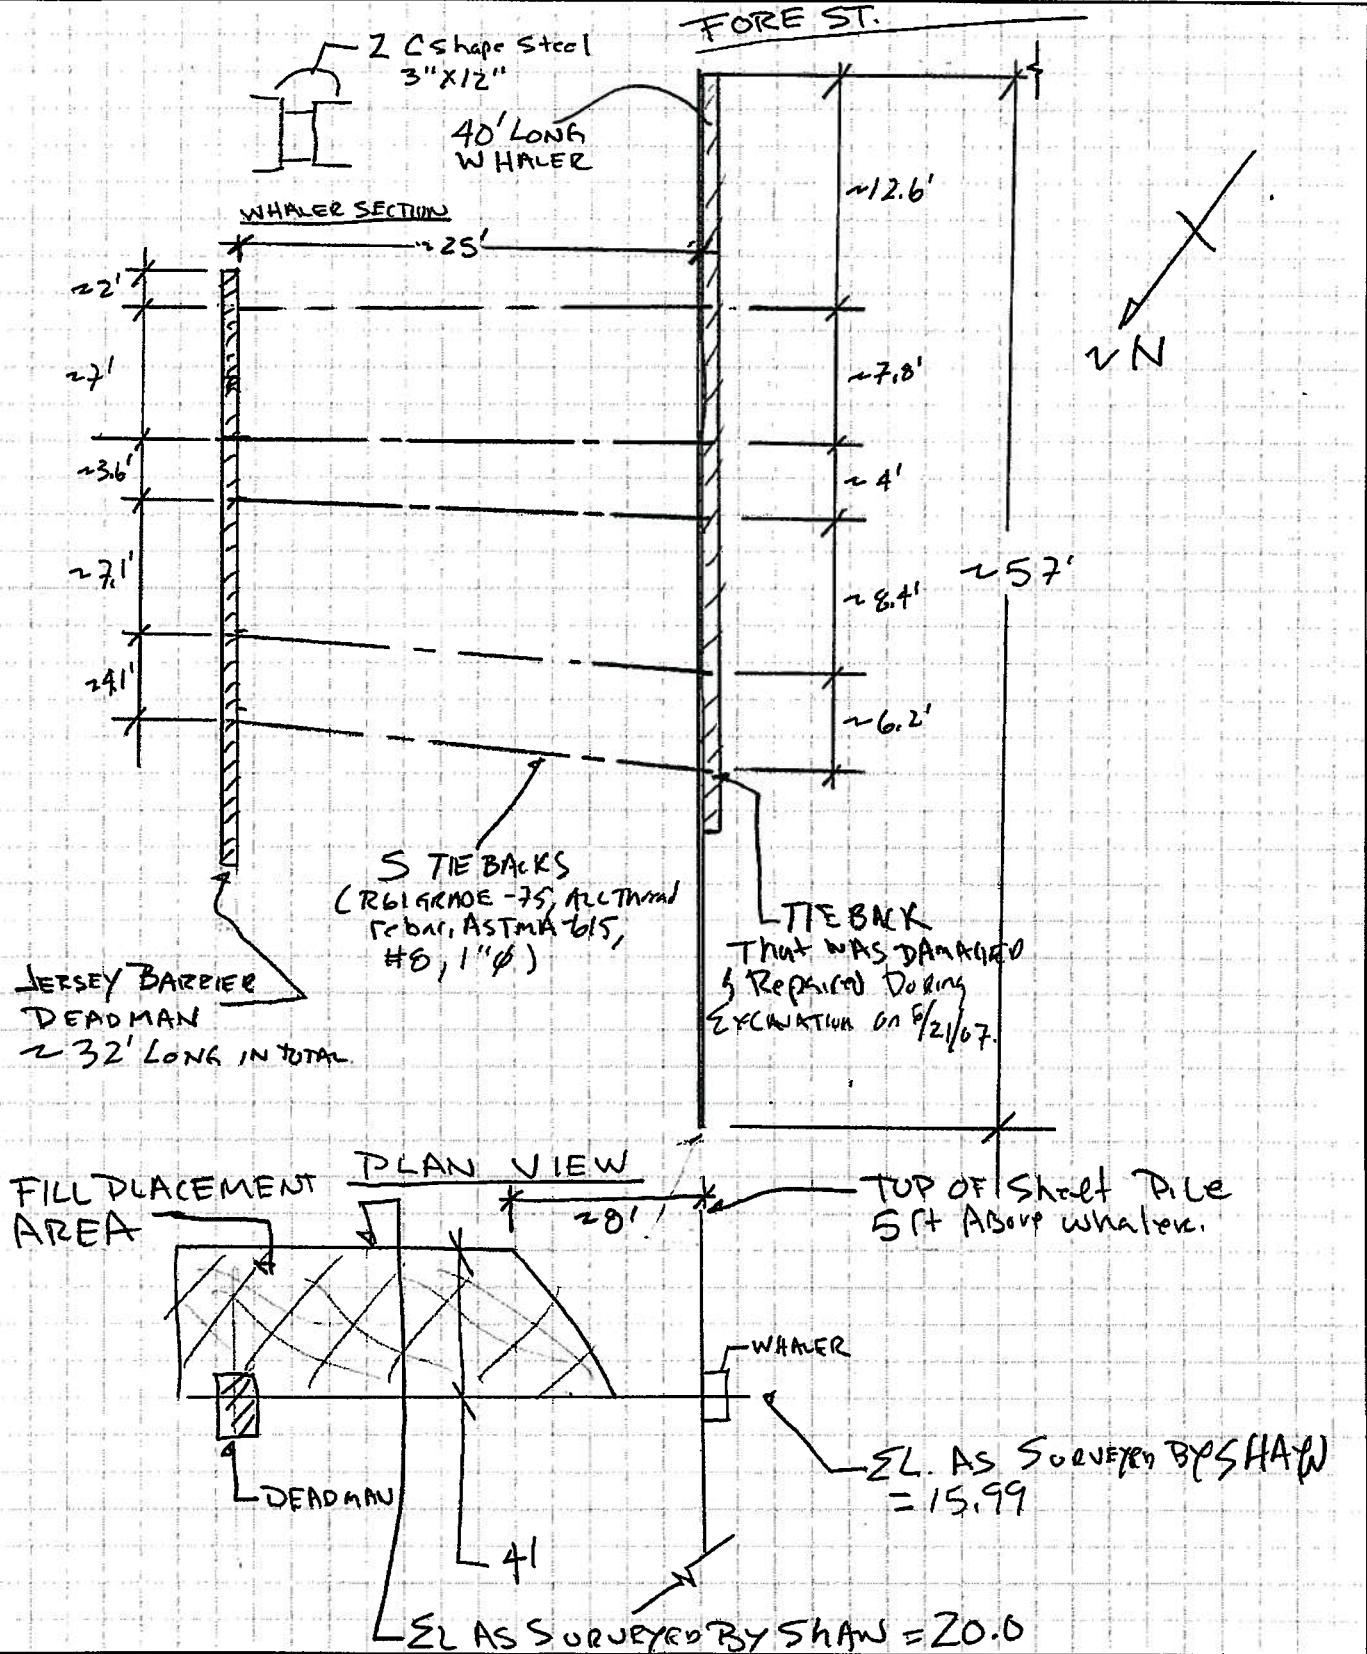 FORE ST.
2 C shape Steel
3"X12"
40' LONG
WHALER
WHALER SECTION
~25'
~12.6'
~2'
~7'
~7.8'
~N
~3.6'
~4'
~7.1'
~57'
~8.4'
~4.1'
~6.2'
5 TIE BACKS
(R61 GRADE -75, ALL Thread
rebar, ASTM A-615,
#8, 1"ø)
TIE BACK
That WAS DAMAGED
& Repaired During
EXCAVATION on 5/21/07.
JERSEY BARRIER
DEADMAN
~32' LONG IN TOTAL
PLAN VIEW
FILL PLACEMENT
AREA
~8'
TOP OF Sheet Pile
5 ft Above whaler.
WHALER
EL. AS SURVEYED BY SHAW
= 15.99
DEADMAN
4'
EL AS SURVEYED BY SHAW = 20.0